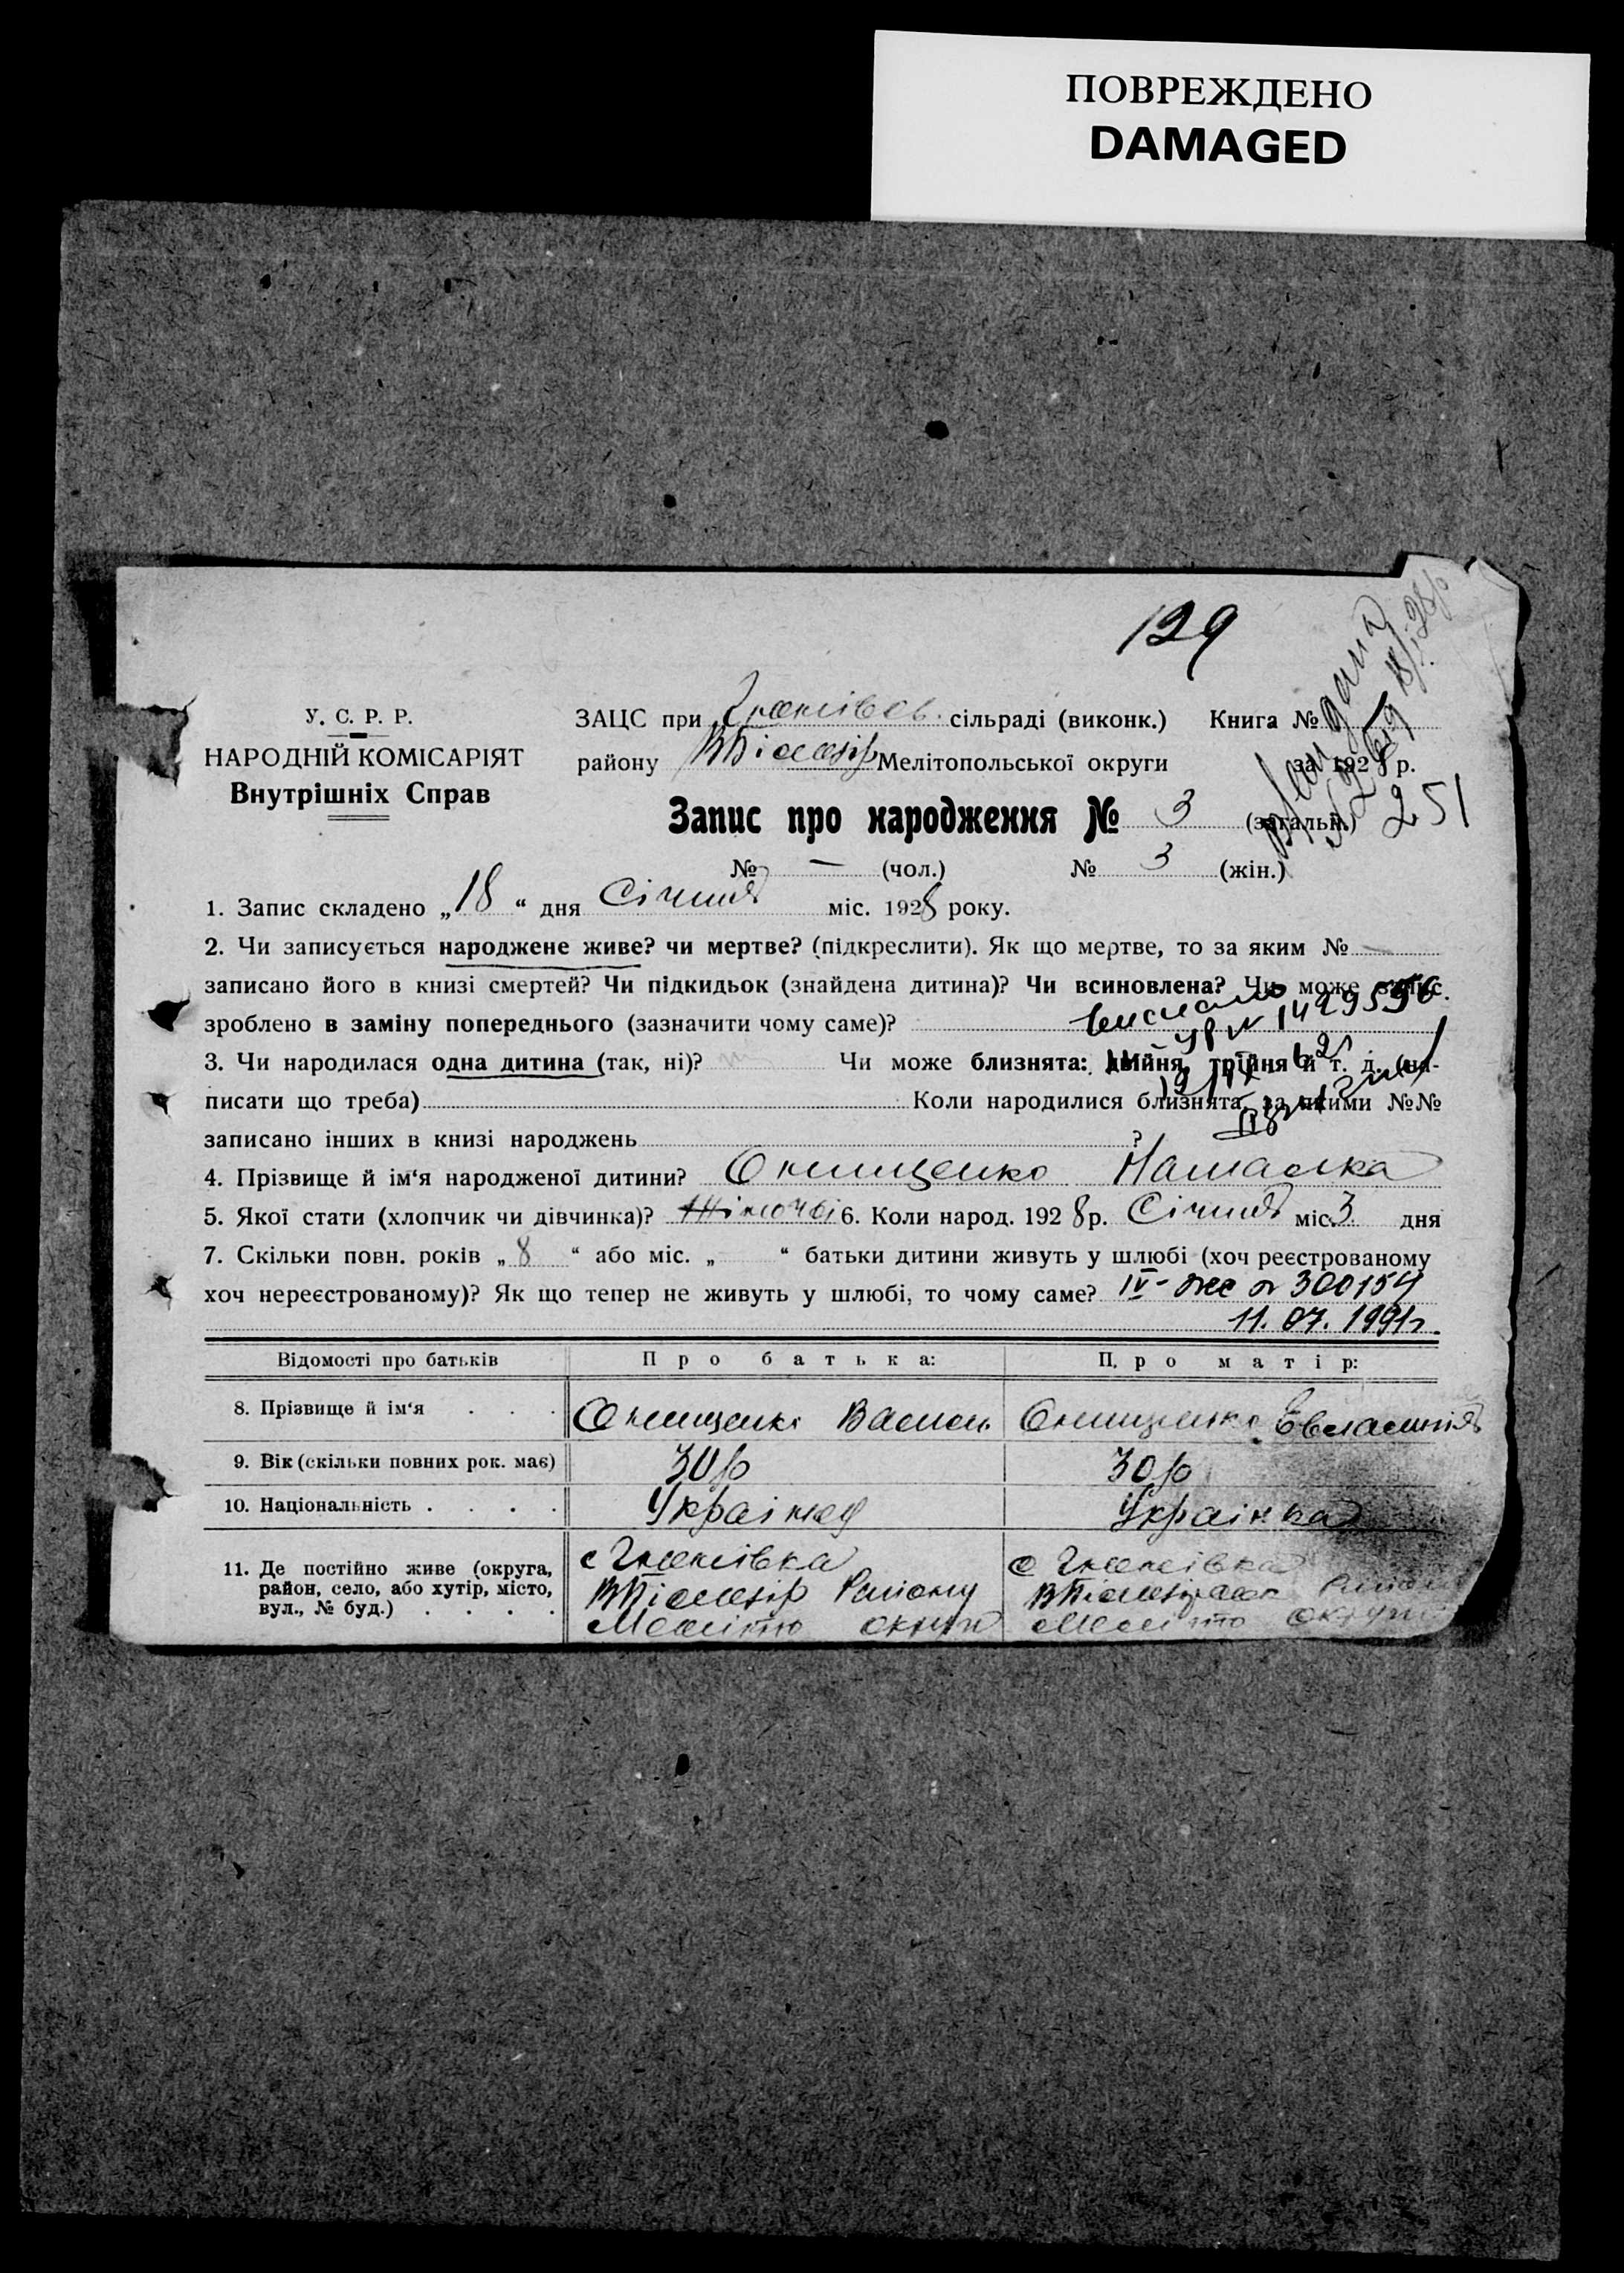 ПОВРЕЖДЕНО
DAMAGED
129
У. С. Р. Р.
НАРОДНІЙ КОМІСАРІЯТ
Внутрішніх Справ
ЗАЦС при сільраді (виконк.) Книга №
району Мелітопольської округи за 1928 р.
251
Запис про народження № 3 (загальн.)
№ — (чол.) № 3 (жін.)
1. Запис складено „18“ дня Січния міс. 1928 року.
2. Чи записується народжене живе? чи мертве? (підкреслити). Як що мертве, то за яким № —
записано його в книзі смертей? Чи підкидьок (знайдена дитина)? Чи всиновлена? Чи може запис
зроблено в заміну попереднього (зазначити чому саме)?
№ 1429556
3. Чи народилася одна дитина (так, ні)? Чи може близнята: двійня, трійня й т. д. (на-
писати що треба) Коли народилися близнята, за якими №№
записано інших в книзі народжень ?
4. Прізвище й ім‘я народженої дитини? Онищенко Наталка
5. Якої стати (хлопчик чи дівчинка)? Жіночої 6. Коли народ. 1928 р. Січния міс. 3 дня
7. Скільки повн. років „8“ або міс. „ “ батьки дитини живуть у шлюбі (хоч реєстрованому
хоч нереєстрованому)? Як що тепер не живуть у шлюбі, то чому саме? IV-жс № 300154
11.07.1991г.
Відомості про батьків Про батька: Про матір:
8. Прізвище й ім‘я . . . Онищенко Васил Онищенко Евластия
9. Вік (скільки повних рок. має) 30 р 30 р
10. Національність . . . . Украінец Украінка
11. Де постійно живе (округа,
район, село, або хутір, місто,
вул., № буд.) . . . .
с Гнатівка
Району
Меліто округи
с Гнатівка
Району
Меліто округи